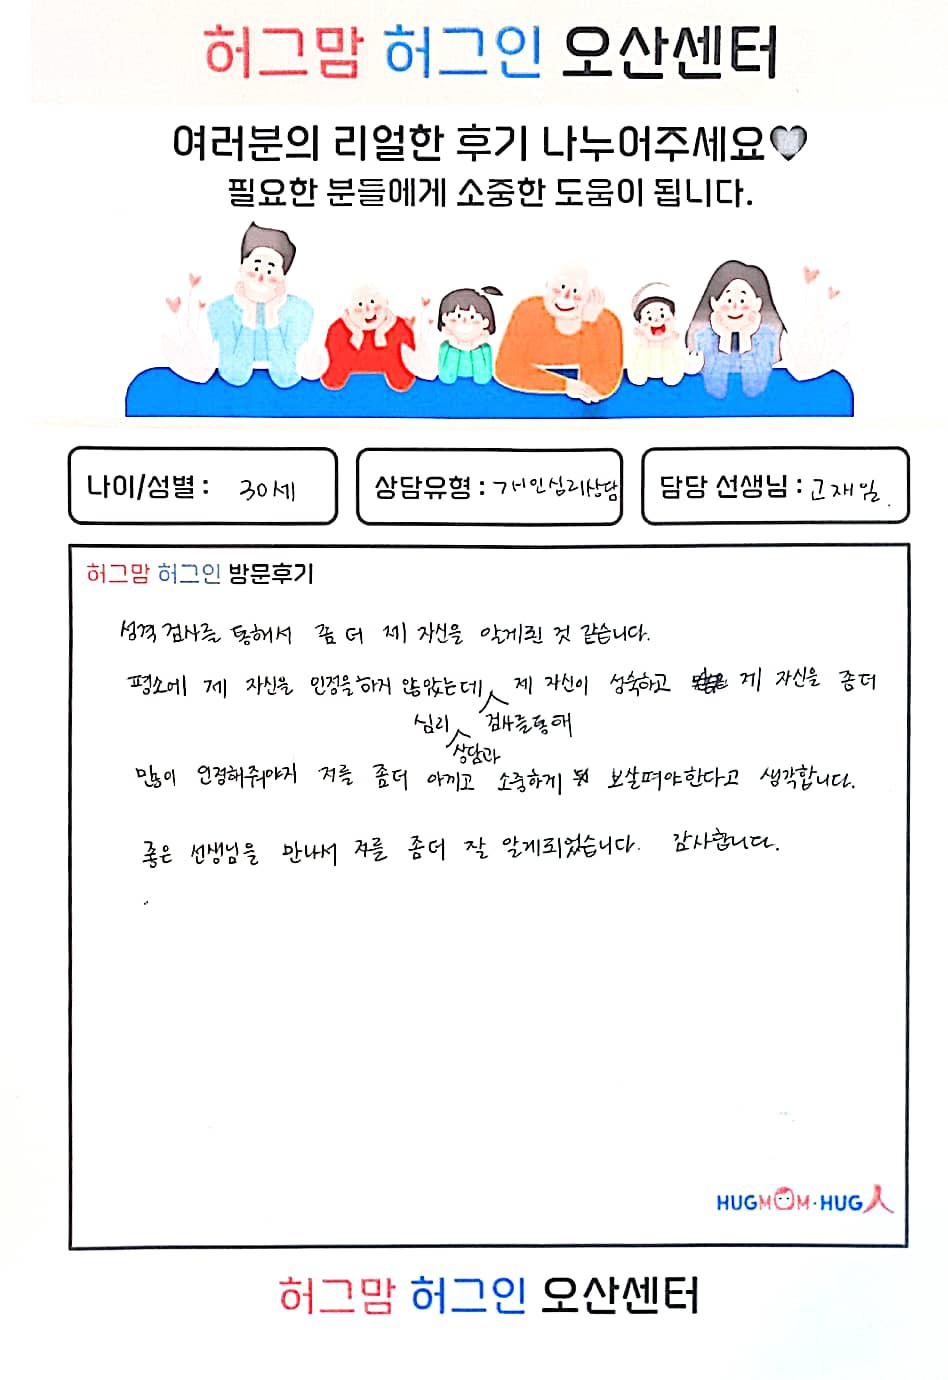 허그맘 허그인 오산센터
여러분의 리얼한 후기 나누어주세요
필요한 분들에게 소중한 도움이 됩니다.
나이/성별 : 30세
상담유형 : 개인심리상담
담당 선생님 : 고재일.
허그맘 허그인 방문후기
성격검사를 통해서 좀 더 제 자신을 알게된 것 같습니다.
평소에 제 자신을 인정을 하지 않았는데 제 자신이 성숙하고 제 자신을 좀더
심리 검사를통해
상담과
많이 인정해줘야지 저를 좀더 아끼고 소중하게 보살펴야한다고 생각합니다.
좋은 선생님을 만나서 저를 좀더 잘 알게되었습니다. 감사합니다.
HUGMOM·HUG人
허그맘 허그인 오산센터